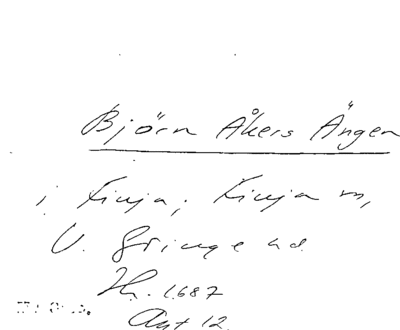 Björn Åkers Ängen
i Finja, Finja sn,
V. Göinge hd.
Hr. 1687
Akt 12.